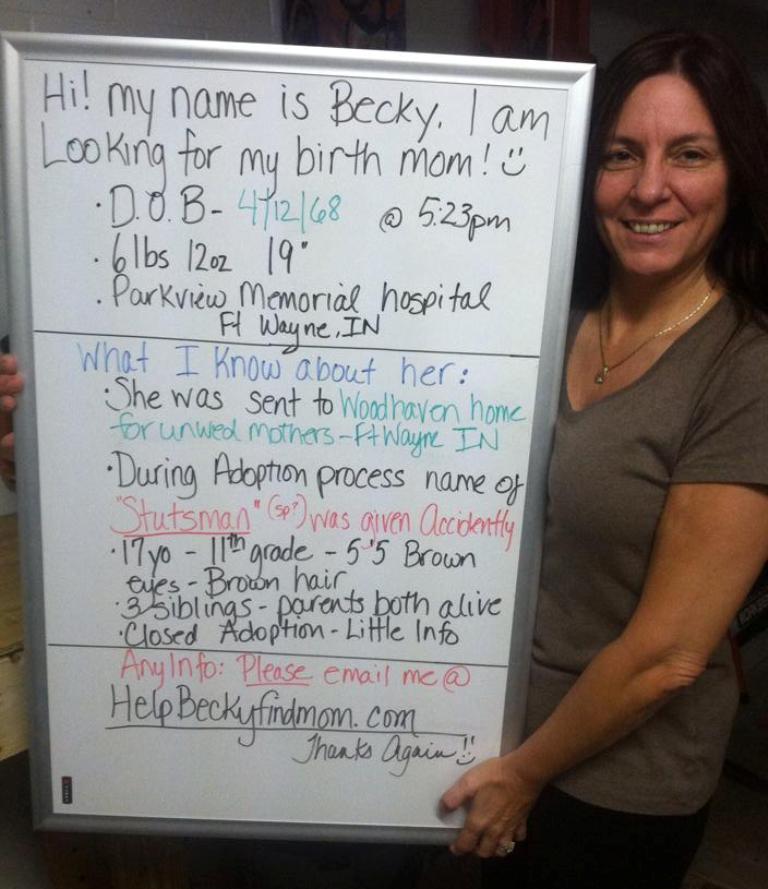 Hi! my name is Becky. I am
Looking for my birth mom!
· D.O.B - 4/12/68 @ 5:23pm
· 6lbs 12oz 19"
· Parkview Memorial hospital
Ft Wayne, IN
What I Know about her:
· She was sent to Woodhaven home
for unwed mothers - Ft Wayne IN
· During Adoption process name of
"Stutsman" (sp?) was given Accidently
· 17yo - 11th grade - 5'5 Brown
eyes - Brown hair
· 3 siblings - parents both alive
· Closed Adoption - Little Info
Any Info: Please email me @
HelpBeckyfindmom.com
Thanks Again!!